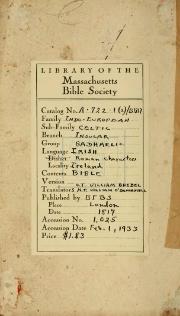 LIBRARY OF THE
Massachusetts
Bible Society
Catalog No. A-722.1(a)/1817
Family INDO-EUROPEAN
Sub-Family CELTIC
Branch INSULAR
Group GADHAELIC
Language IRISH
Dialect Roman characters
Locality Ireland
Contents BIBLE
Version
O.T. WILLIAM BEDEL
Translators N.T. WILLIAM O'DOMHNUILL
Published by BFBS
Place London
Date 1817
Accession No. 1,025
Accession Date Feb. 1, 1933
Price $1.83